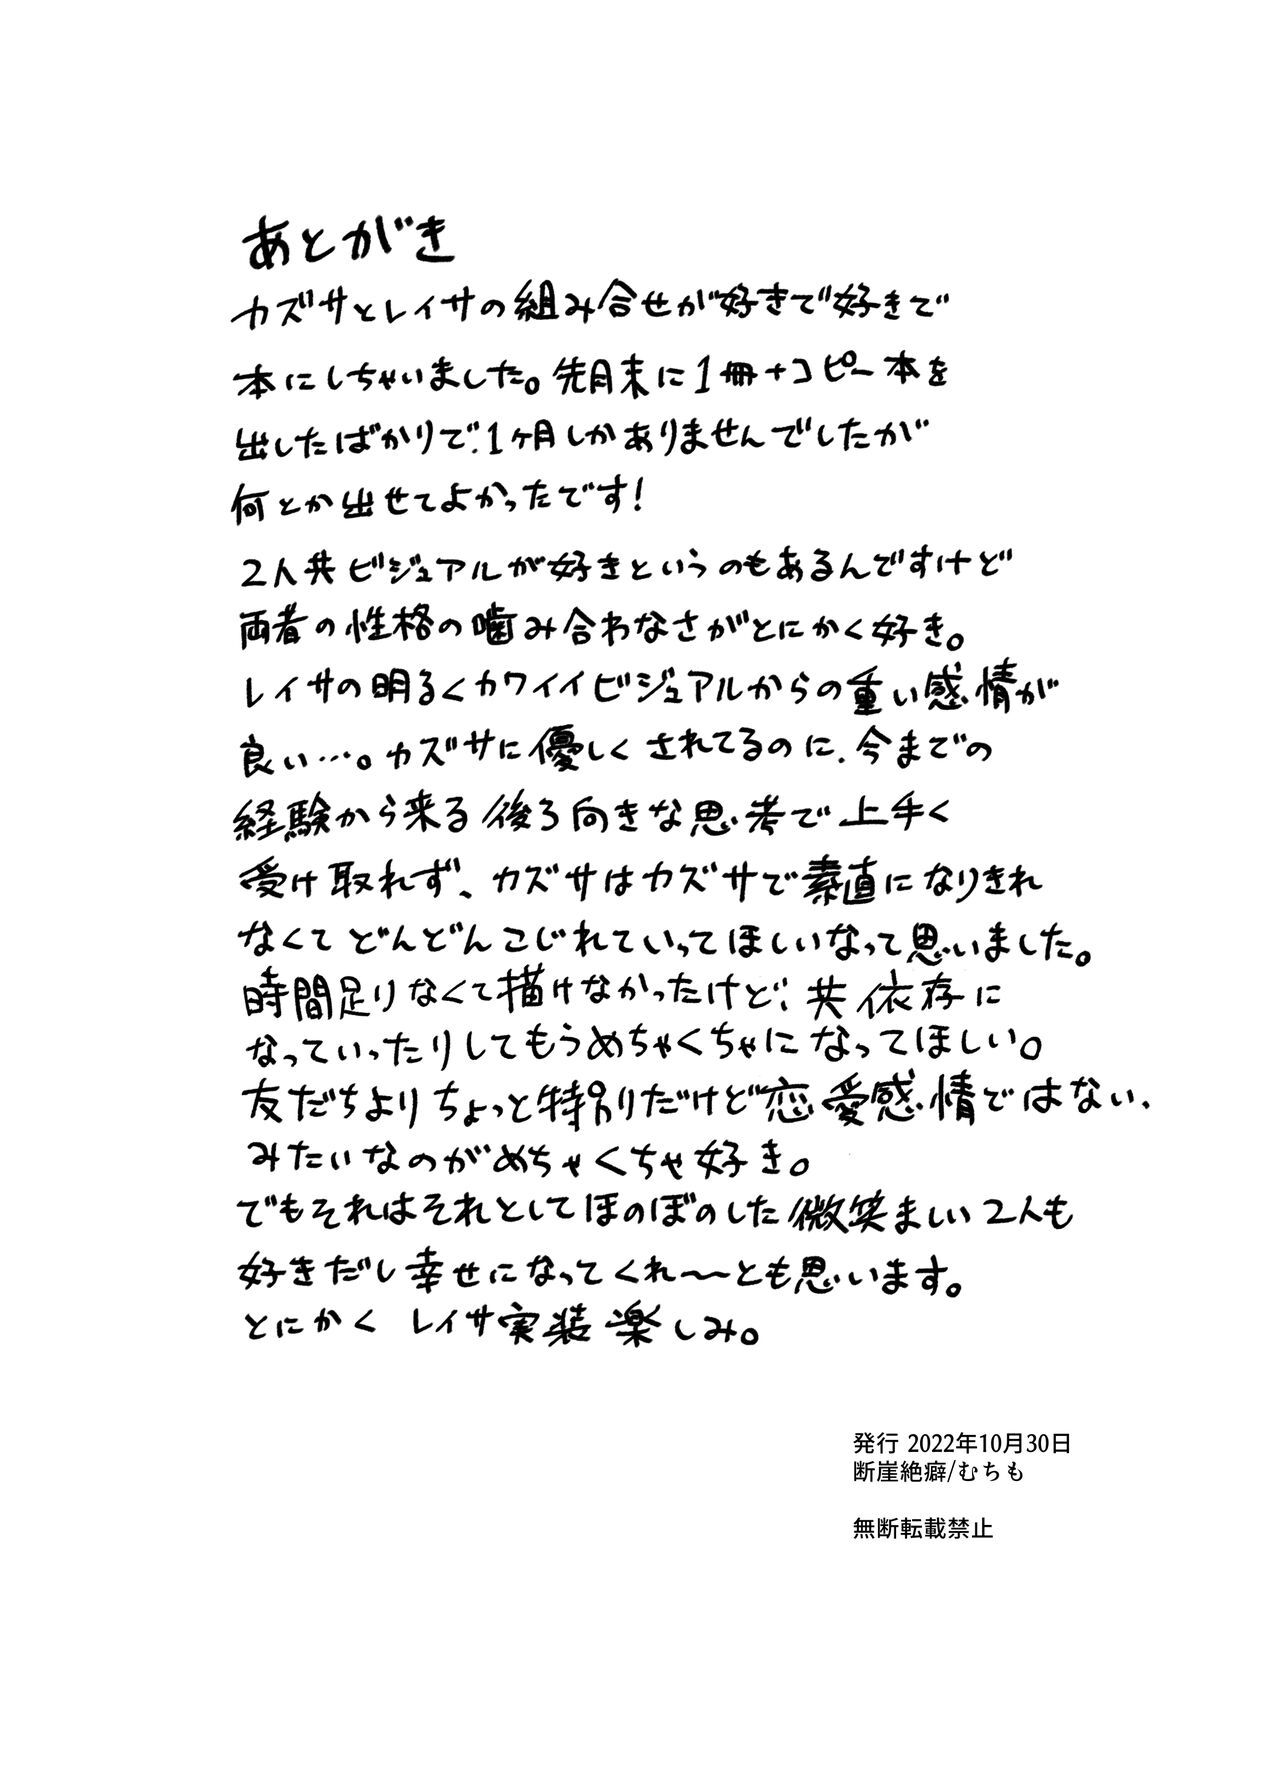 あとがき
カズサとレイサの組み合せが好きで好きで
本にしちゃいました。先月末に1冊+コピー本を
出したばかりで、1ヶ月しかありませんでしたが
何とか出せてよかったです!
2人共ビジュアルが好きというのもあるんですけど
両者の性格の噛み合わなさがとにかく好き。
レイサの明るくカワイイビジュアルからの重い感情が
良い…。カズサに優しくされてるのに、今までの
経験から来る後ろ向きな思考で上手く
受け取れず、カズサはカズサで素直になりきれ
なくてどんどんこじれていってほしいなって思いました。
時間足りなくて描けなかったけど、共依存に
なっていったりしてもうめちゃくちゃになってほしい。
友だちよりちょっと特別だけど恋愛感情ではない、
みたいなのがめちゃくちゃ好き。
でもそれはそれとしてほのぼのした微笑ましい2人も
好きだし幸せになってくれ〜〜とも思います。
とにかく レイサ実装楽しみ。
発行 2022年10月30日
断崖絶癖/むちも
無断転載禁止